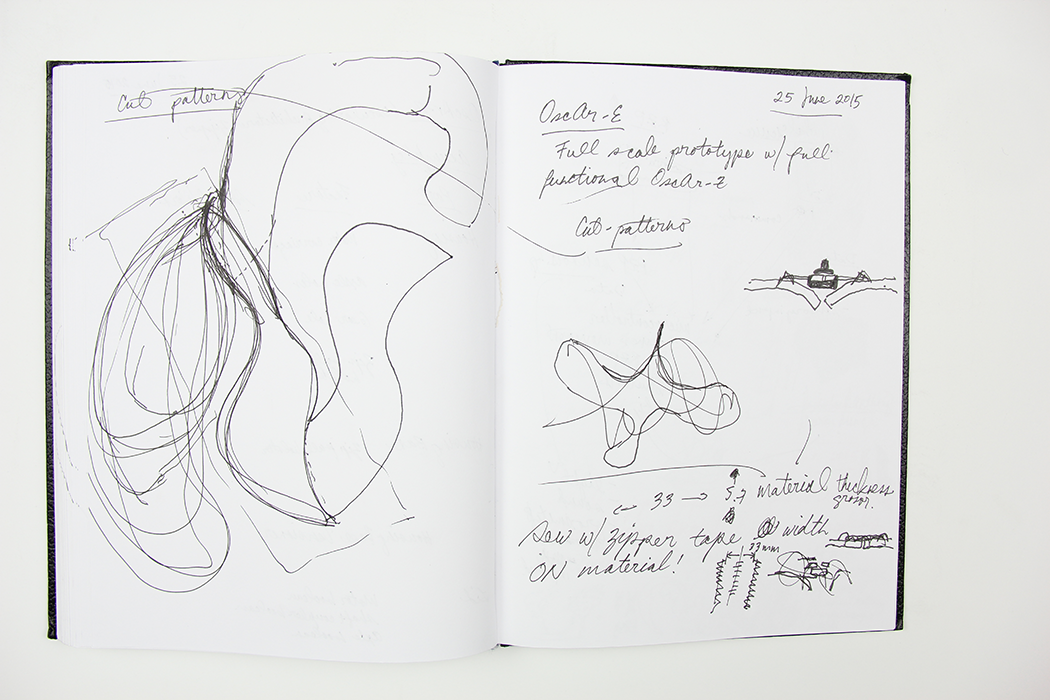 Cut patterns
25 June 2015
OscAr-E
Full scale prototype w/ full
functional OscAr-E
Cut-patterns
← 33 → 5.7 material thickness
Sew w/ zipper tape @ width
33mm
ON material!